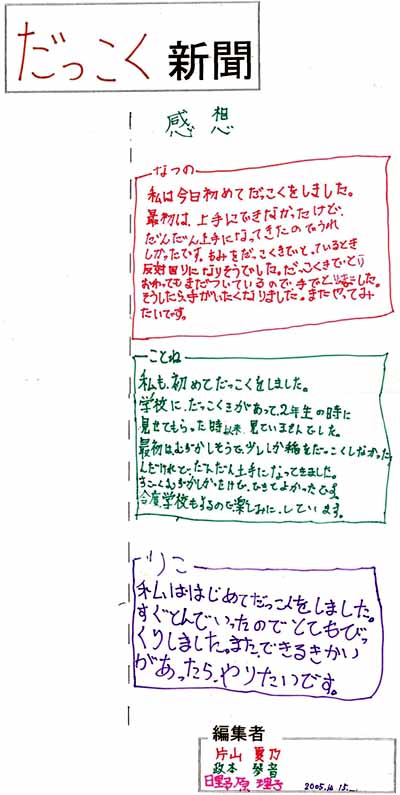 だっこく 新聞
感想
なつの
私は今日初めてだっこくをしました。
最初は、上手にできなかったけど、
だんだん上手になってきたのでうれ
しかったです。もみをだっこくきでとっているとき
反対回りになりそうでした。だっこくきでとり
おわってもまだついているので、手でとりました。
そうしたら、手がいたくなりました。またやってみ
たいです。
ことね
私も、初めてだっこくをしました。
学校に、だっこくきがあって、2年生の時に
見せてもらった時以来、見ていませんでした。
最初はむずかしそうで、少ししか稲をだっこくしなかった
んだけれど、だんだん上手になってきました。
すごくむずかしかったけど、できてよかったです。
今度、学校もするので楽しみに、しています。
りこ
私ははじめてだっこくをしました。
すぐとんでいったのでとてもびっ
くりしました。またできるきかい
があったら、やりたいです。
編集者
片山 夏乃
政本 琴音
日野原 理子
2005.10.15